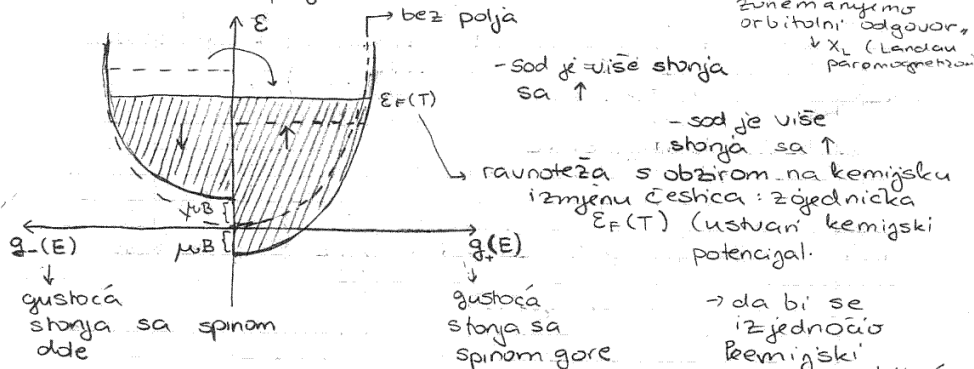 ε
→ bez polja
zanemarujemo
orbitalni odgovor,,
↓ χL (Landau
paramagnetizam
- sad je više stanja
sa ↑
εF(T)
- sad je više
stanja sa ↑
→ ravnoteža s obzirom na kemijsku
izmjenu čestica : zajednička
εF(T) (ustvari kemijski
potencijal.
↓
↑
μB
μB
g-(E)
g+(E)
↓
gustoća
stanja sa spinom
dole
↓
gustoća
stanja sa
spinom gore
→ da bi se
izjednačio
kemijski